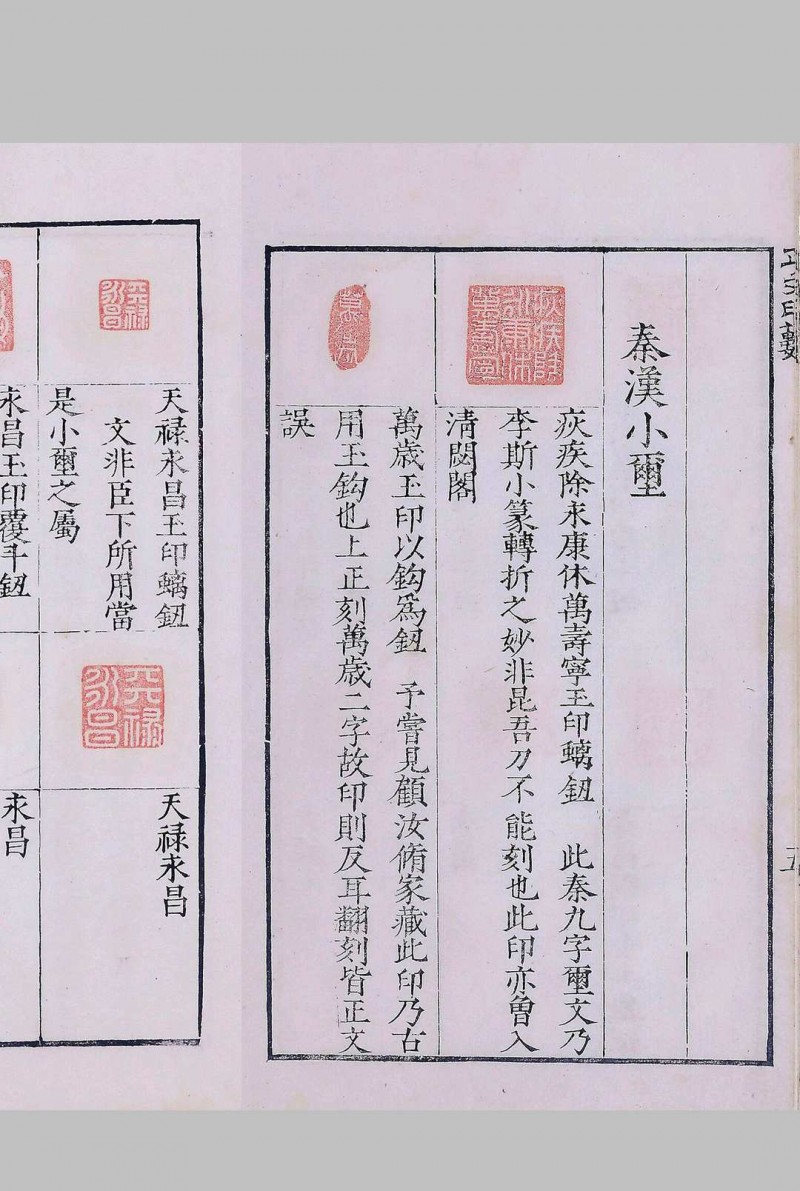 秦漢小壐
疢疾除永康休萬壽寧
疢疾除永康休萬壽寧玉印螭鈕　此秦九字壐文乃
李斯小篆轉折之妙非昆吾刀不能刻也此印亦曾入
清閟閣
萬歲
萬歲玉印以鈎爲鈕　予嘗見顧汝脩家藏此印乃古
用玉鈎也上正刻萬歲二字故印則反耳翻刻皆正文
誤
天祿永昌
天禄永昌玉印螭鈕
文非臣下所用當
是小壐之屬
天祿永昌
天禄永昌
永昌玉印覆斗鈕
永昌